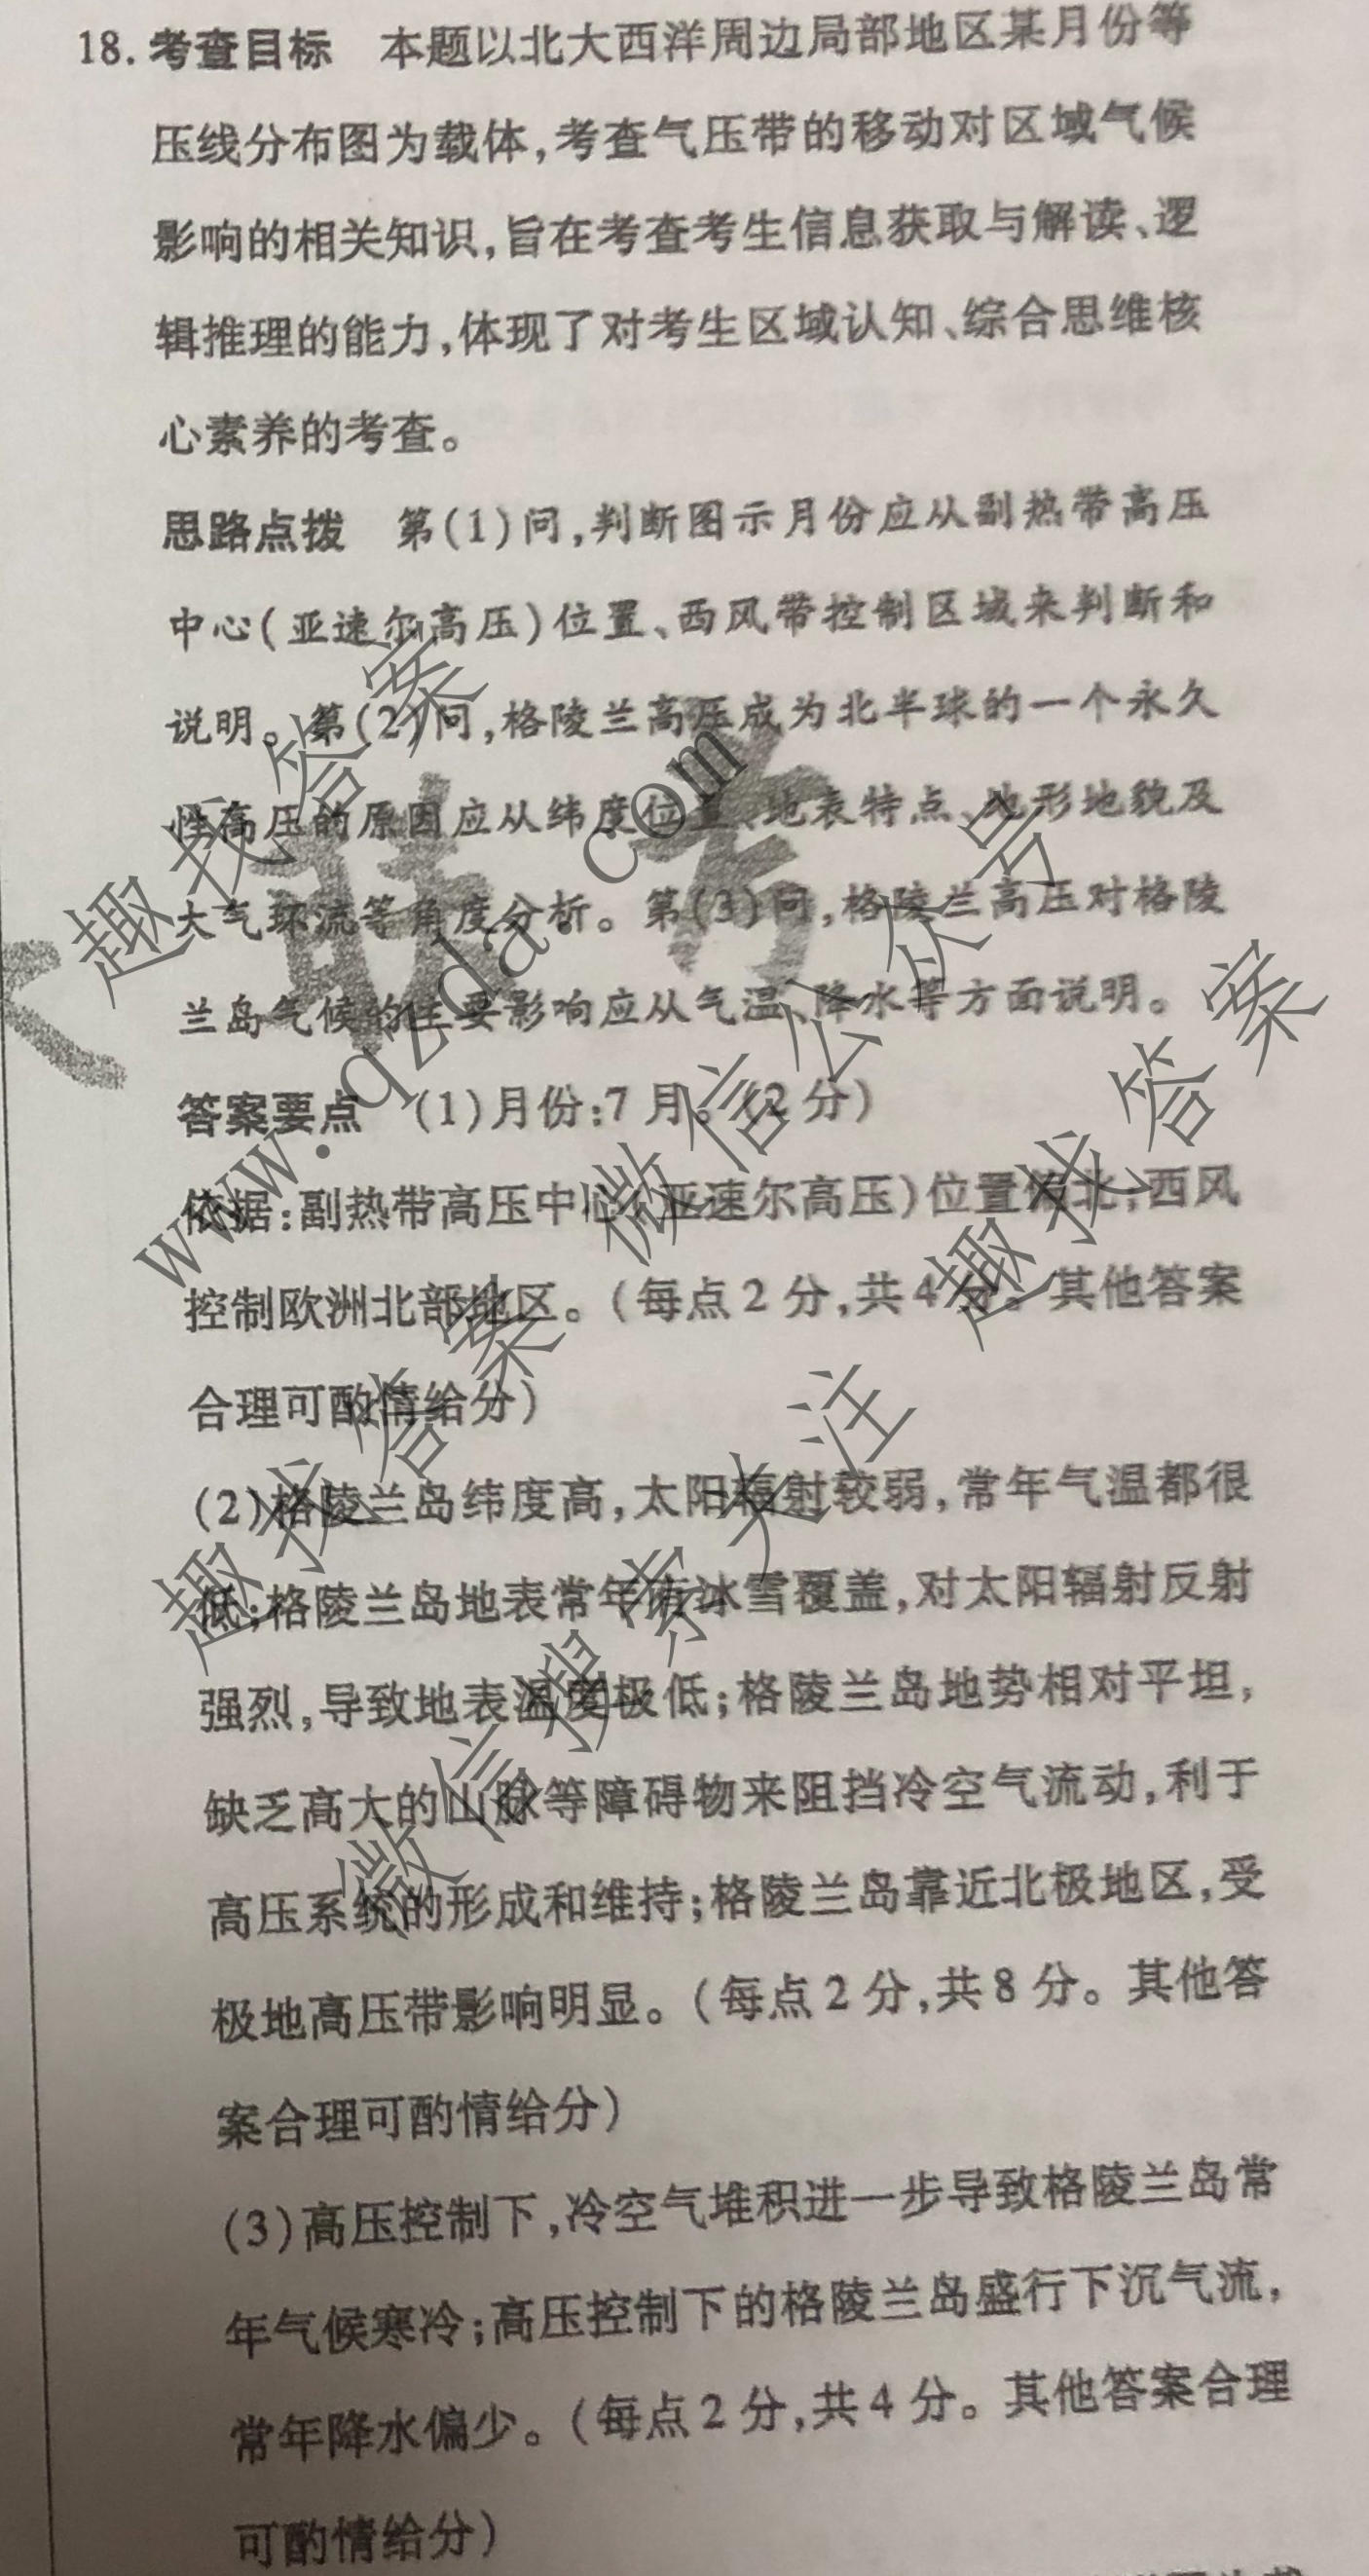 18. 考查目标 本题以北大西洋周边局部地区某月份等
压线分布图为载体,考查气压带的移动对区域气候
影响的相关知识,旨在考查考生信息获取与解读、逻
辑推理的能力,体现了对考生区域认知、综合思维核
心素养的考查。
思路点拨 第(1)问,判断图示月份应从副热带高压
中心(亚速尔高压)位置、西风带控制区域来判断和
说明。第(2)问,格陵兰高压成为北半球的一个永久
性高压的原因应从纬度位置、地表特点、地形地貌及
大气环流等角度分析。第(3)问,格陵兰高压对格陵
兰岛气候的主要影响应从气温、降水等方面说明。
答案要点 (1)月份:7月。(2分)
依据:副热带高压中心(亚速尔高压)位置偏北;西风
控制欧洲北部地区。(每点2分,共4分。其他答案
合理可酌情给分)
(2)格陵兰岛纬度高,太阳辐射较弱,常年气温都很
低;格陵兰岛地表常年有冰雪覆盖,对太阳辐射反射
强烈,导致地表温度极低;格陵兰岛地势相对平坦,
缺乏高大的山脉等障碍物来阻挡冷空气流动,利于
高压系统的形成和维持;格陵兰岛靠近北极地区,受
极地高压带影响明显。(每点2分,共8分。其他答
案合理可酌情给分)
(3)高压控制下,冷空气堆积进一步导致格陵兰岛常
年气候寒冷;高压控制下的格陵兰岛盛行下沉气流,
常年降水偏少。(每点2分,共4分。其他答案合理
可酌情给分)
趣找答案
www.qzda.com
微信公众号
趣找答案
微信搜索关注
趣找答案